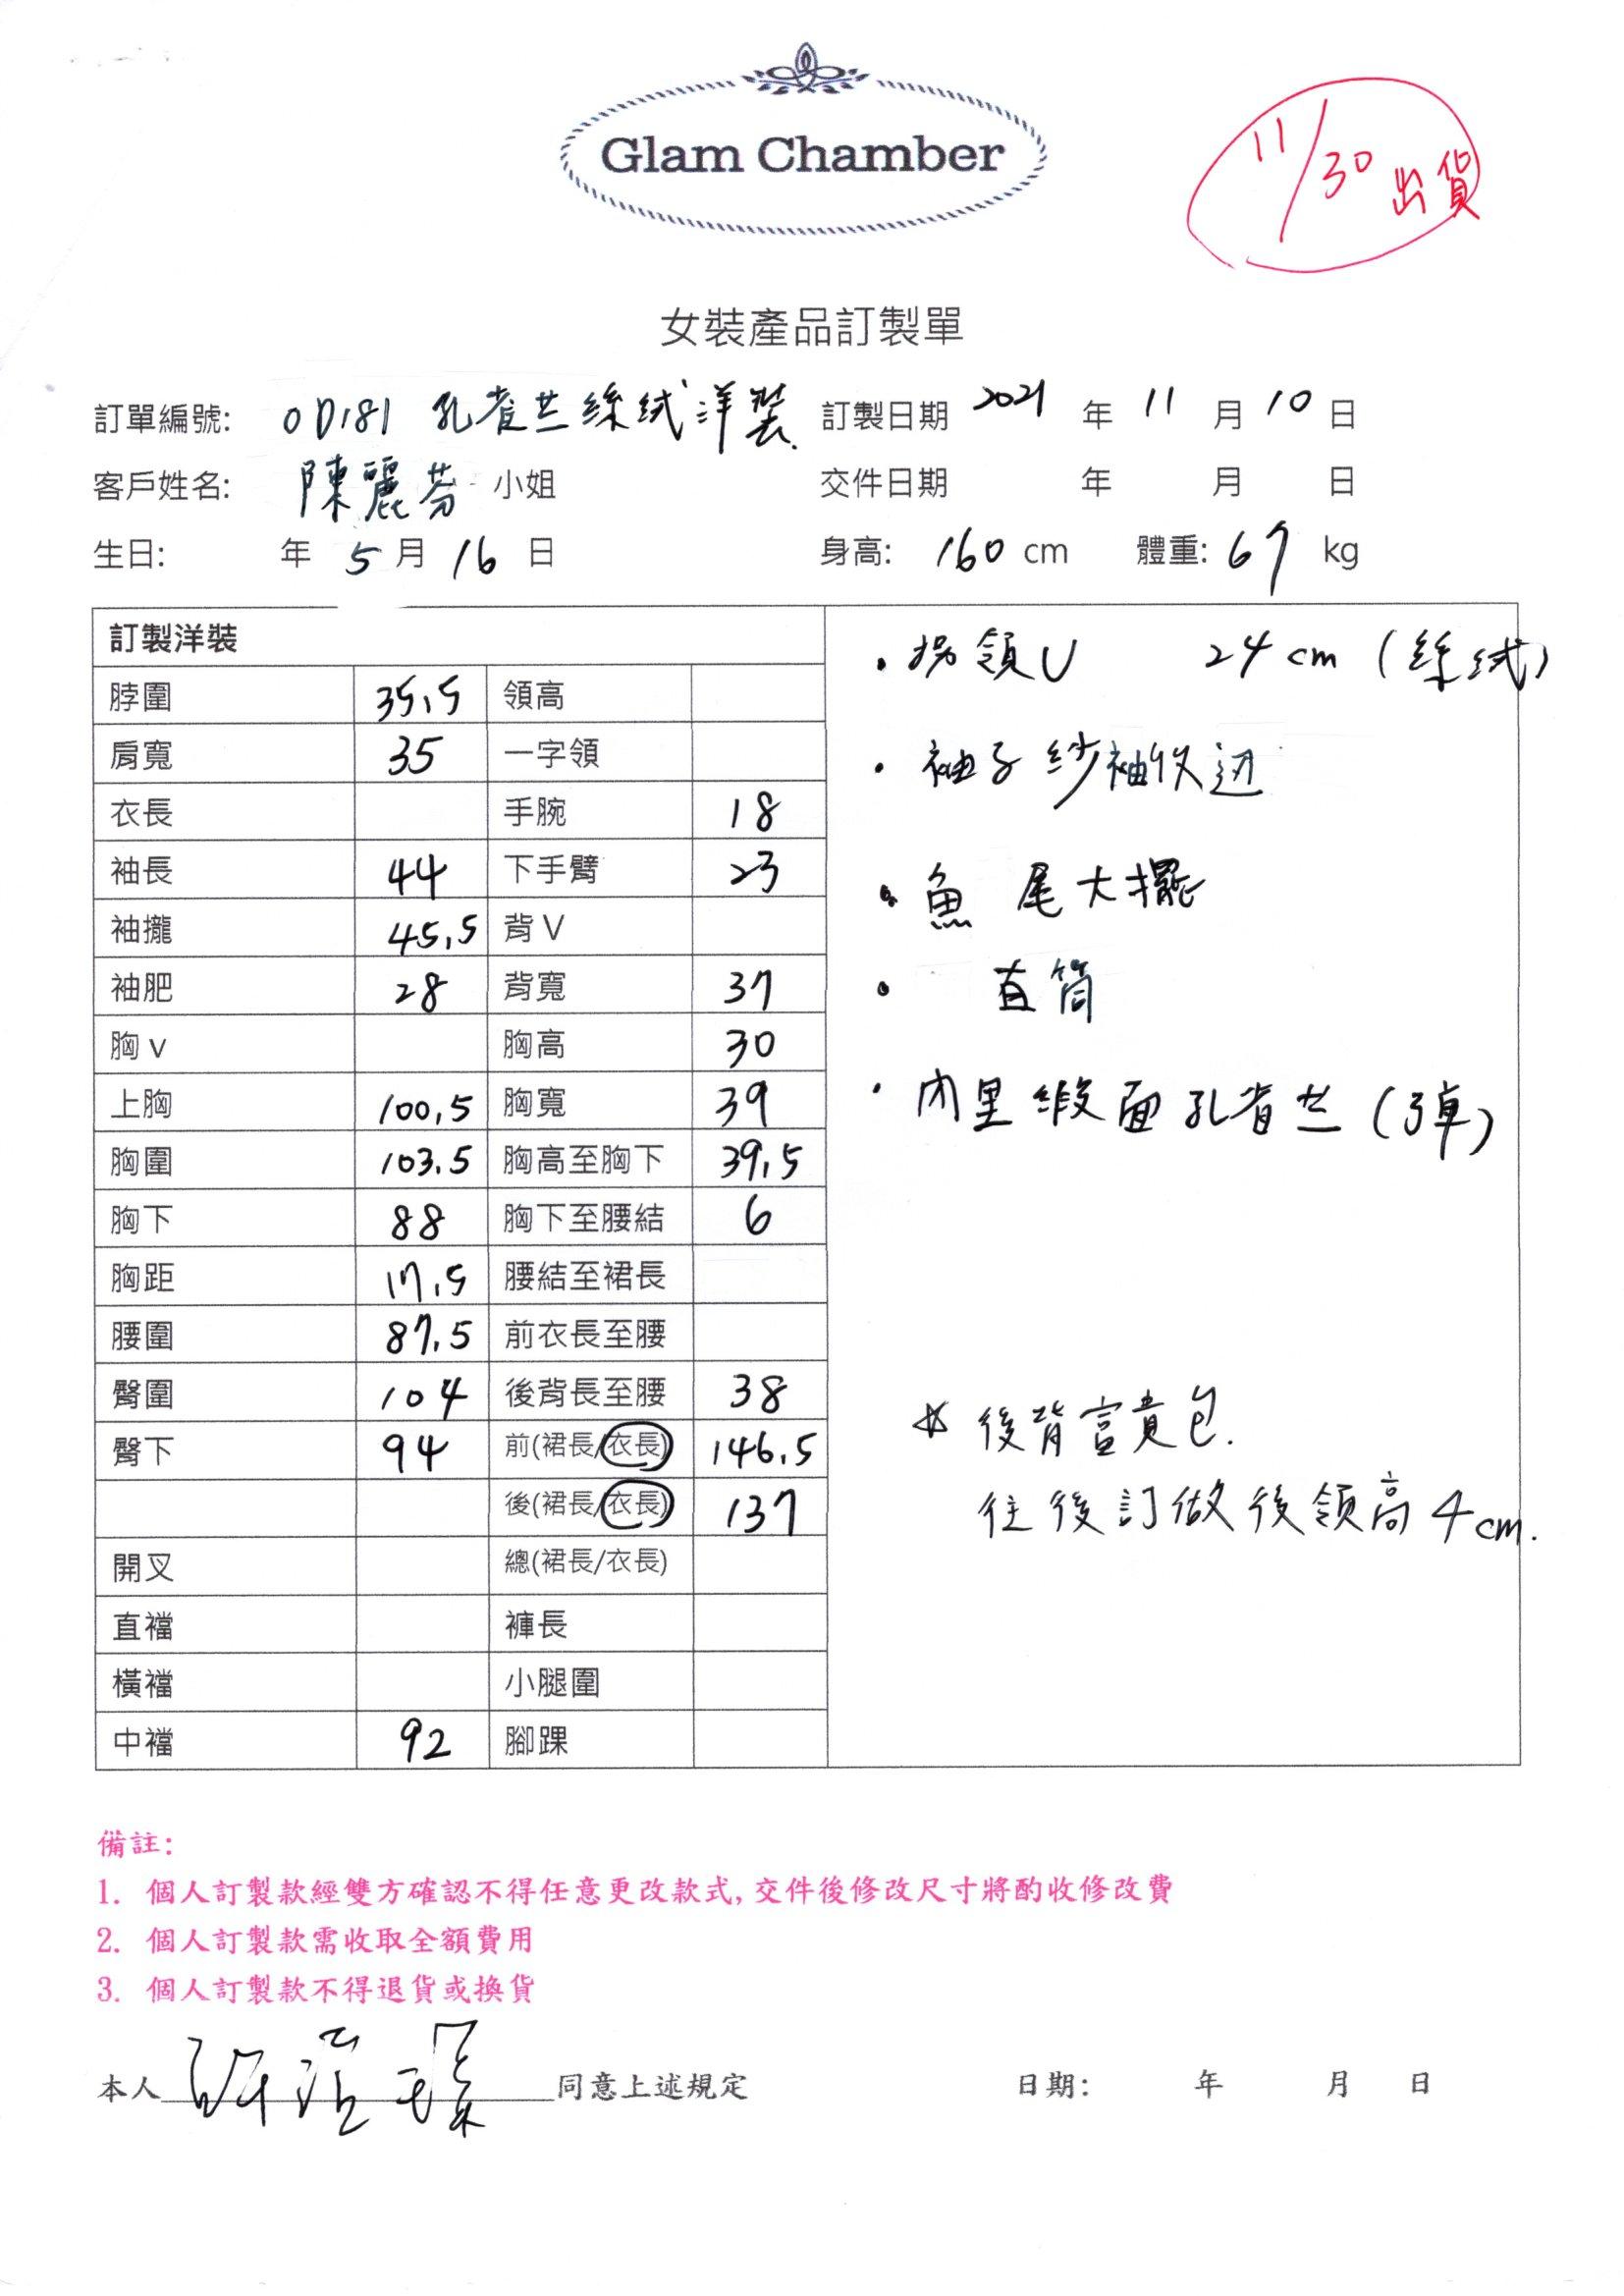 Glam Chamber
11/30 出貨
女裝產品訂製單
訂單編號: OD181 孔雀芷絲絨洋裝. 訂製日期 2021 年 11 月 10 日
客戶姓名: 陳麗芬 小姐 交件日期 年 月 日
生日: 年 5 月 16 日 身高: 160 cm 體重: 67 kg
訂製洋裝
脖圍 35.5 領高
肩寬 35 一字領
衣長 手腕 18
袖長 44 下手臂 23
袖攏 45.5 背V
袖肥 28 背寬 37
胸v 胸高 30
上胸 100.5 胸寬 39
胸圍 103.5 胸高至胸下 39.5
胸下 88 胸下至腰結 6
胸距 17.5 腰結至裙長
腰圍 87.5 前衣長至腰
臀圍 104 後背長至腰 38
臀下 94 前(裙長/衣長) 146.5
後(裙長/衣長) 137
開叉 總(裙長/衣長)
直襠 褲長
橫襠 小腿圍
中襠 92 腳踝
• 領U 24cm (絲絨)
• 袖子紗袖收边
• 魚尾大擺
• 直筒
• 內里緞面孔雀芷
* 後背富貴包.
往後訂做後領高4cm.
備註:
1. 個人訂製款經雙方確認不得任意更改款式, 交件後修改尺寸將酌收修改費
2. 個人訂製款需收取全額費用
3. 個人訂製款不得退貨或換貨
本人 同意上述規定 日期: 年 月 日